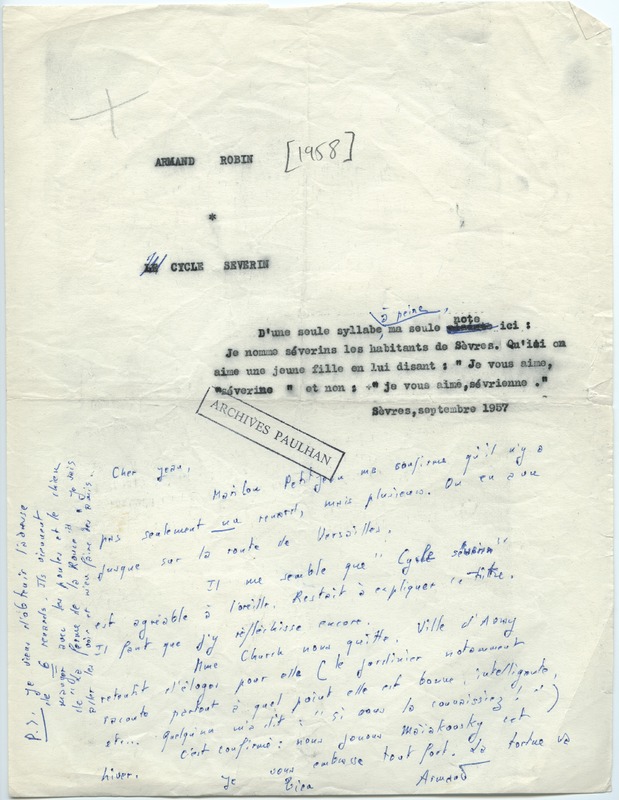 [1958]
ARMAND ROBIN
*
CYCLE SEVERIN
à peine,
note
D'une seule syllabe, ma seule ici :
Je nomme séverins les habitants de Sèvres. Qu'ici on
aime une jeune fille en lui disant : " Je vous aime,
"séverine " et non : " je vous aime,sévrienne ."
Sèvres,septembre 1957
ARCHIVES PAULHAN
Cher Jean,
Marilou Petitjean me confirme qu'il n'y a
pas seulement un renard, mais plusieurs. On en a vu
jusque sur la route de Versailles.
Il me semble que " Cycle séverin"
est agréable à l'oreille. Restait à expliquer le titre.
Il faut que j'y réfléchisse encore.
Mme Church nous quitte. Ville d'Avray
retentit d'éloges pour elle (le jardinier notamment
raconte partout à quel point elle est bonne, intelligente,
et... quelqu'un m'a dit : " si vous la connaissiez ! " )
C'est confirmé : nous jouons Maïakovsky cet
hiver. Je vous embrasse tout fort. La tortue va
bien Armand
P.S. Je viens d'obtenir l'adresse
de 6 renards. Ils viennent
manger avec les poules et le chien
de la ferme de la Ronce. Je vais
aller les voir et m'en faire des amis.